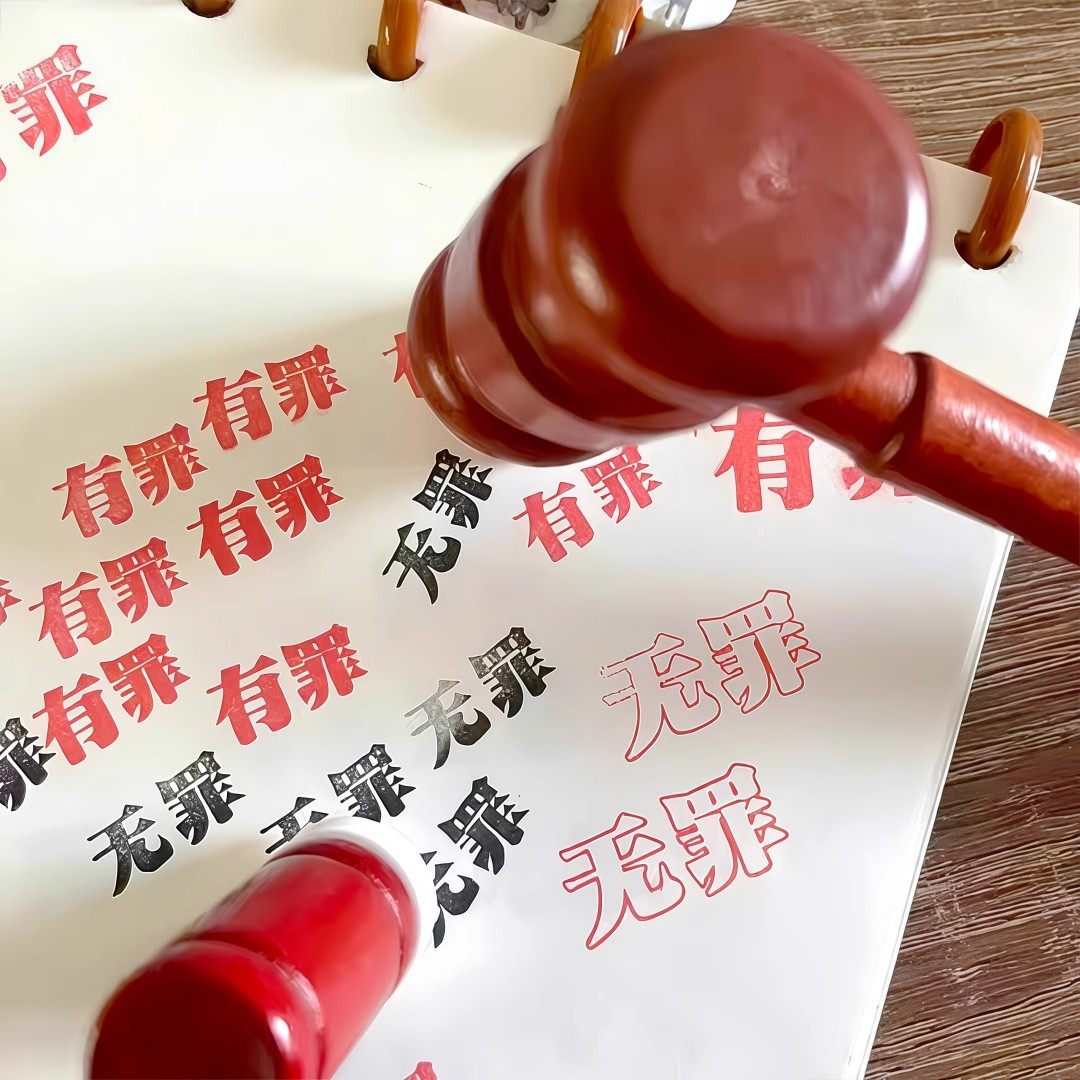 有罪
有罪
有罪
有罪
无罪
有罪
有罪
有罪
有罪
无罪
有罪
有罪
无罪
罪
无罪
无罪
无罪
无罪